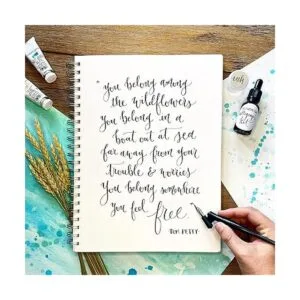 "you belong among
the wildflowers
you belong in a
boat out at sea
far away from your
trouble & worries
You belong somewhere
you feel free
TOM PETTY
ink